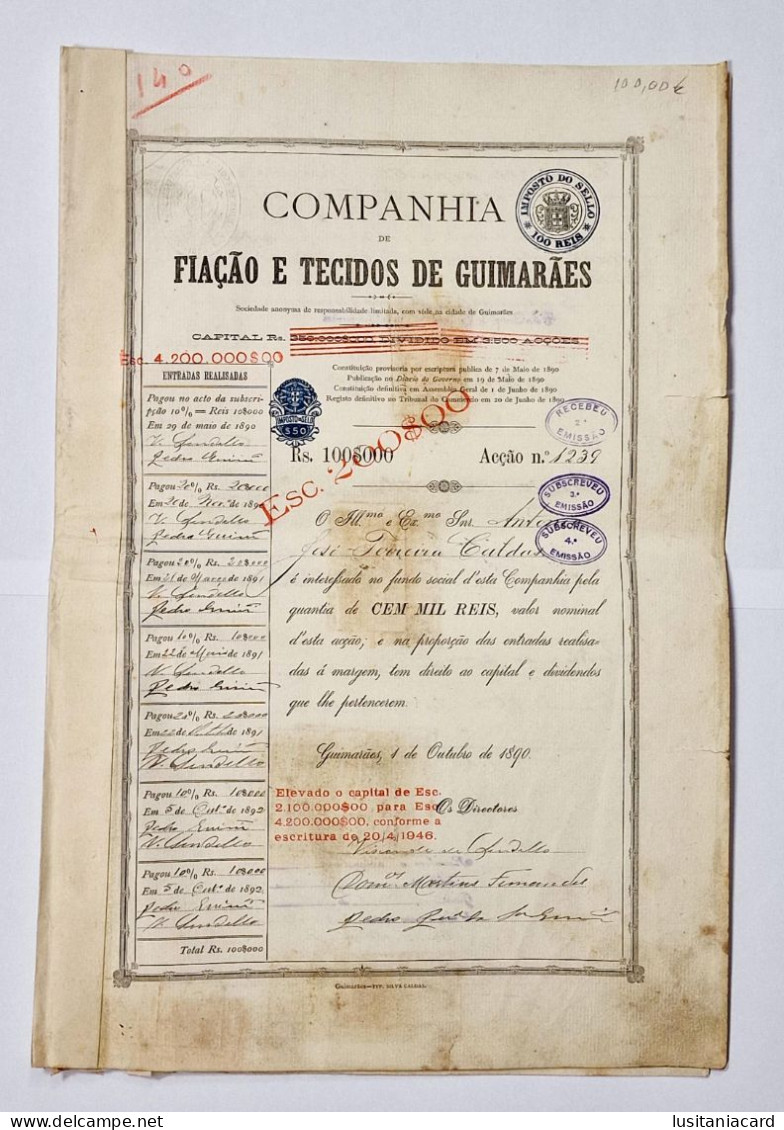 140
100,00€
COMPANHIA
DE
FIAÇÃO E TECIDOS DE GUIMARÃES
IMPOSTO DO SELLO
100 REIS
Sociedade anonyma de responsabilidade limitada, com séde na cidade de Guimarães
CAPITAL Rs. 350.000$000 DIVIDIDO EM 3.500 ACÇÕES
Esc. 4.200.000$00
Constituição provisoria por escriptura publica de 7 de Maio de 1890
Publicação no Diario do Governo em 19 de Maio de 1890
Constituição definitiva em Assembleia Geral de 1 de Junho de 1890
Registo definitivo no Tribunal do Commercio em 20 de Junho de 1890
ENTRADAS REALISADAS
Pagou no acto da subscri-
pção 10% = Reis 10$000
Em 29 de maio de 1890
V. Lindello
Pedro Guim
Pagou 20% Rs. 20$000
Em 20 de Nov.º de 189
V. Lindello
Pedro Guim
Pagou 20% Rs. 20$000
Em 21 de Março de 1891
V. Lindello
Pedro Guim
Pagou 10% Rs. 10$000
Em 22 de Maio de 1891
V. Lindello
Pedro Guim
Pagou 20% Rs. 20$000
Em 22 de 1891
Pedro Guim
V. Lindello
Pagou 10% Rs. 10$000
Em 5 de Out.º de 1892
Pedro Guim
V. Lindello
Pagou 10% Rs. 10$000
Em 5 de Out.º de 1892
Pedro Guim
V. Lindello
Total Rs. 100$000
IMPOSTO DO SELO
$50
Rs. 100$000
Acção n.º 1239
Esc. 200$00
RECEBEU
2.ª
EMISSÃO
SUBSCREVEU
3.ª
EMISSÃO
SUBSCREVEU
4.ª
EMISSÃO
O Ill.mo e Ex.mo Snr. Antonio
José Ferreira Caldas
é interessado no fundo social d'esta Companhia pela
quantia de CEM MIL REIS, valor nominal
d'esta acção; e na proporção das entradas realisa-
das á margem, tem direito ao capital e dividendos
que lhe pertencerem.
Guimarães, 1 de Outubro de 1890.
Elevado o capital de Esc.
2.100.000$00 para Esc.
4.200.000$00, conforme a
escritura de 20/4/1946.
Os Directores
Visconde de Lindello
Dom.os Martins Fernandes
Pedro
Guimarães—TYP. SILVA CALDAS.
lusitaniacard